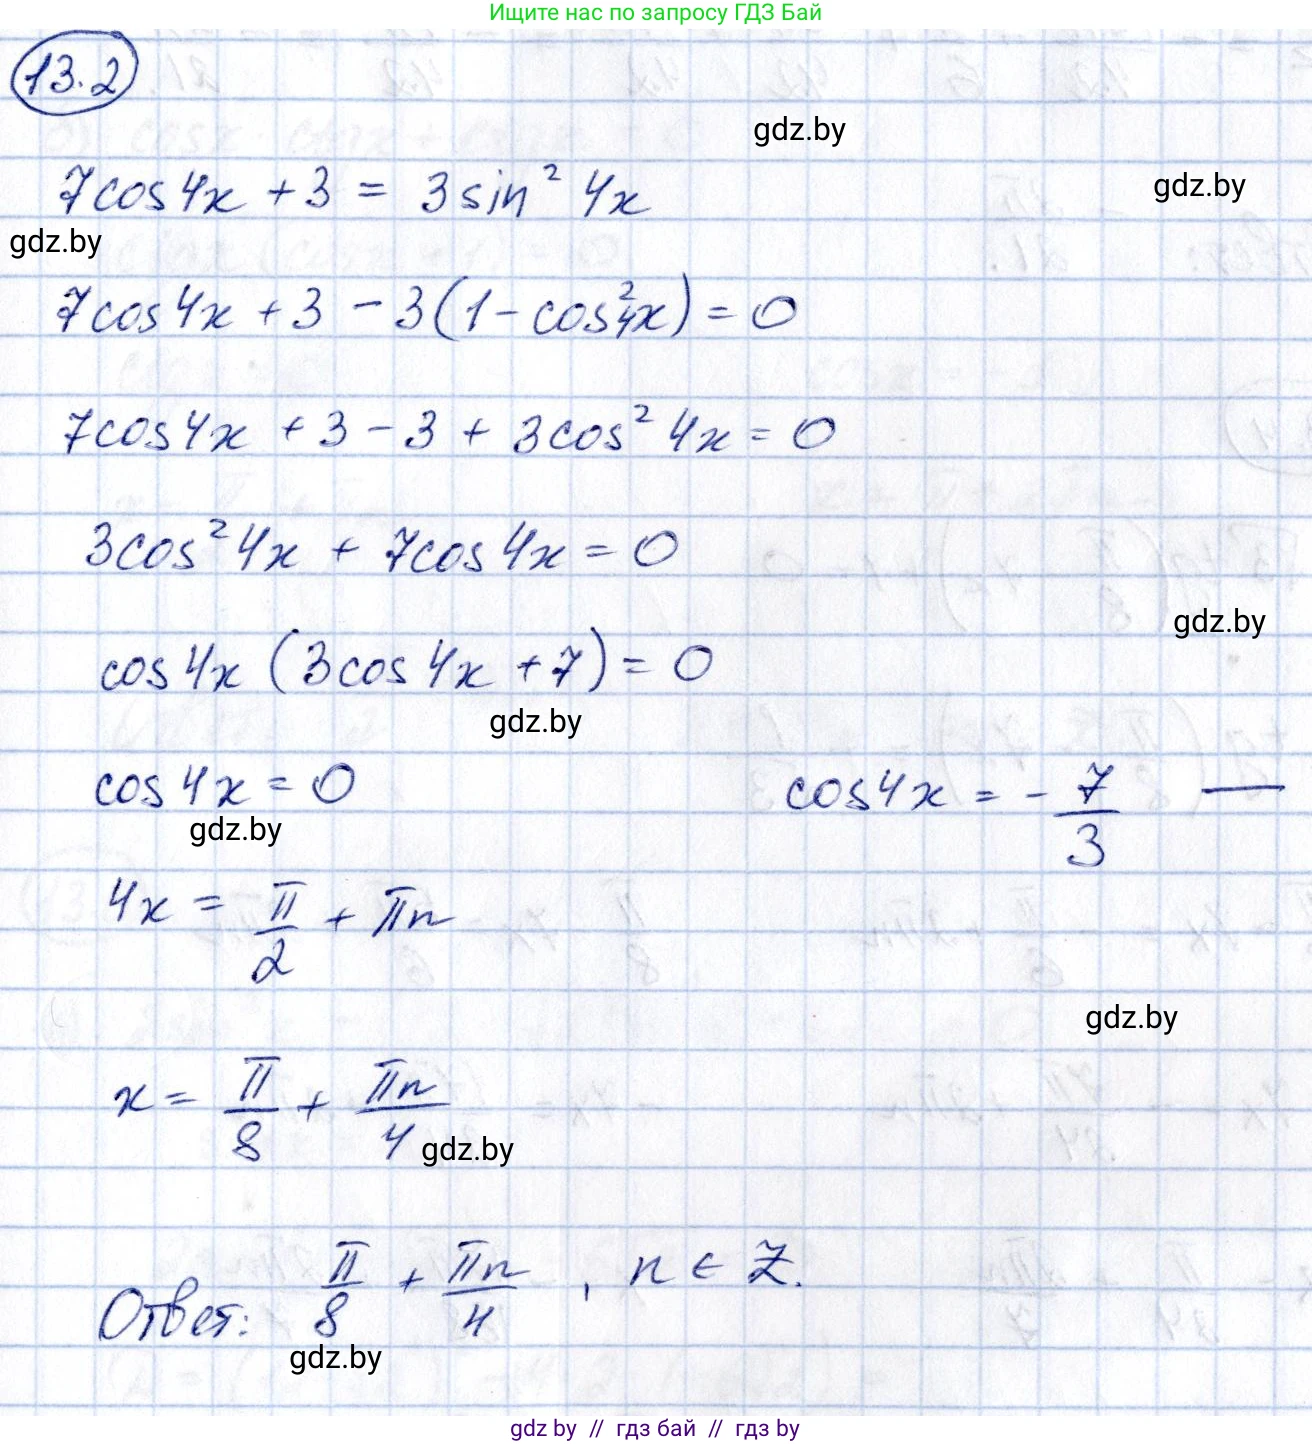 Ищите нас по запросу ГДЗ Бай
13.2
gdz.by
7cos4x + 3 = 3sin² 4x
gdz.by
gdz.by
7cos4x + 3 - 3(1 - cos²4x) = 0
7cos4x + 3 - 3 + 3cos² 4x = 0
3cos² 4x + 7cos4x = 0
gdz.by
cos4x (3cos4x + 7) = 0
gdz.by
cos4x = 0   cos4x = - 7/3 —
gdz.by
4x = π/2 + πn
gdz.by
x = π/8 + πn/4
gdz.by
Ответ: π/8 + πn/4 , n ∈ Z.
gdz.by
gdz.by // гдз бай // gdz.by